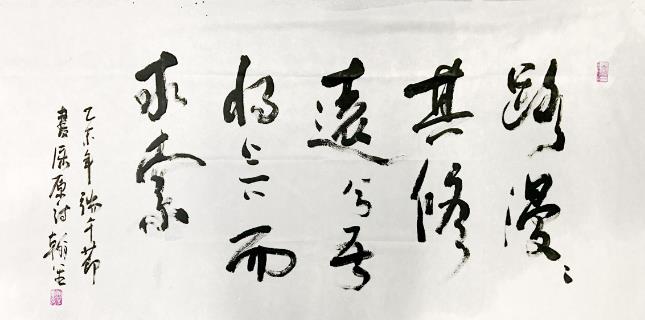 路漫漫
其修
遠兮吾
将上下而
求索
乙未年端午節
書屈原诗翰